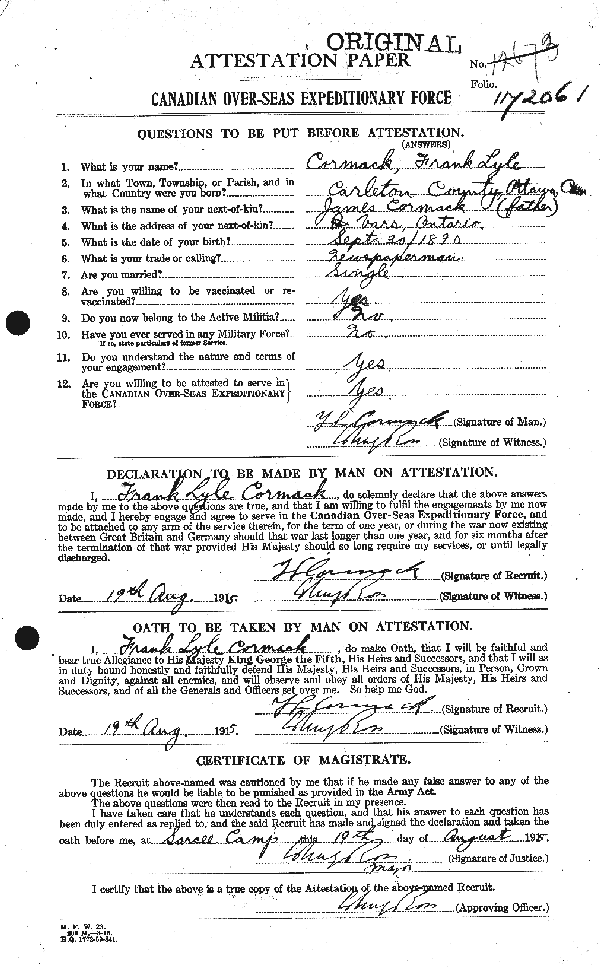 ORIGINAL
ATTESTATION PAPER
No.
Folio.
117206
CANADIAN OVER-SEAS EXPEDITIONARY FORCE
QUESTIONS TO BE PUT BEFORE ATTESTATION.
(ANSWERS)
1. What is your name? Cormack, Frank Lyle
2. In what Town, Township, or Parish, and in
what Country were you born? Carleton County Ottawa,
3. What is the name of your next-of-kin? James Cormack (father)
4. What is the address of your next-of-kin? Vars, Ontario
5. What is the date of your birth? Sept. 20/1890
6. What is your trade or calling? Newspaperman
7. Are you married? Single
8. Are you willing to be vaccinated or re-
vaccinated? Yes
9. Do you now belong to the Active Militia? No
10. Have you ever served in any Military Force? No
If so, state particulars of former Service.
11. Do you understand the nature and terms of
your engagement? Yes
12. Are you willing to be attested to serve in
the CANADIAN OVER-SEAS EXPEDITIONARY Yes
FORCE?
F L Cormack (Signature of Man.)
(Signature of Witness.)
DECLARATION TO BE MADE BY MAN ON ATTESTATION.
I, Frank Lyle Cormack, do solemnly declare that the above answers
made by me to the above questions are true, and that I am willing to fulfil the engagements by me now
made, and I hereby engage and agree to serve in the Canadian Over-Seas Expeditionary Force, and
to be attached to any arm of the service therein, for the term of one year, or during the war now existing
between Great Britain and Germany should that war last longer than one year, and for six months after
the termination of that war provided His Majesty should so long require my services, or until legally
discharged.
F L Cormack (Signature of Recruit.)
Date 19th Aug. 1915. (Signature of Witness.)
OATH TO BE TAKEN BY MAN ON ATTESTATION.
I, Frank Lyle Cormack, do make Oath, that I will be faithful and
bear true Allegiance to His Majesty King George the Fifth, His Heirs and Successors, and that I will as
in duty bound honestly and faithfully defend His Majesty, His Heirs and Successors, in Person, Crown
and Dignity, against all enemies, and will observe and obey all orders of His Majesty, His Heirs and
Successors, and of all the Generals and Officers set over me. So help me God.
F L Cormack (Signature of Recruit.)
Date 19th Aug. 1915. (Signature of Witness.)
CERTIFICATE OF MAGISTRATE.
The Recruit above-named was cautioned by me that if he made any false answer to any of the
above questions he would be liable to be punished as provided in the Army Act.
The above questions were then read to the Recruit in my presence.
I have taken care that he understands each question, and that his answer to each question has
been duly entered as replied to, and the said Recruit has made and signed the declaration and taken the
oath before me, at Sarcee Camp this 19th day of August 1915.
(Signature of Justice.)
Major
I certify that the above is a true copy of the Attestation of the above-named Recruit.
(Approving Officer.)
M. F. W. 23.
H.Q. 1772-39-841.